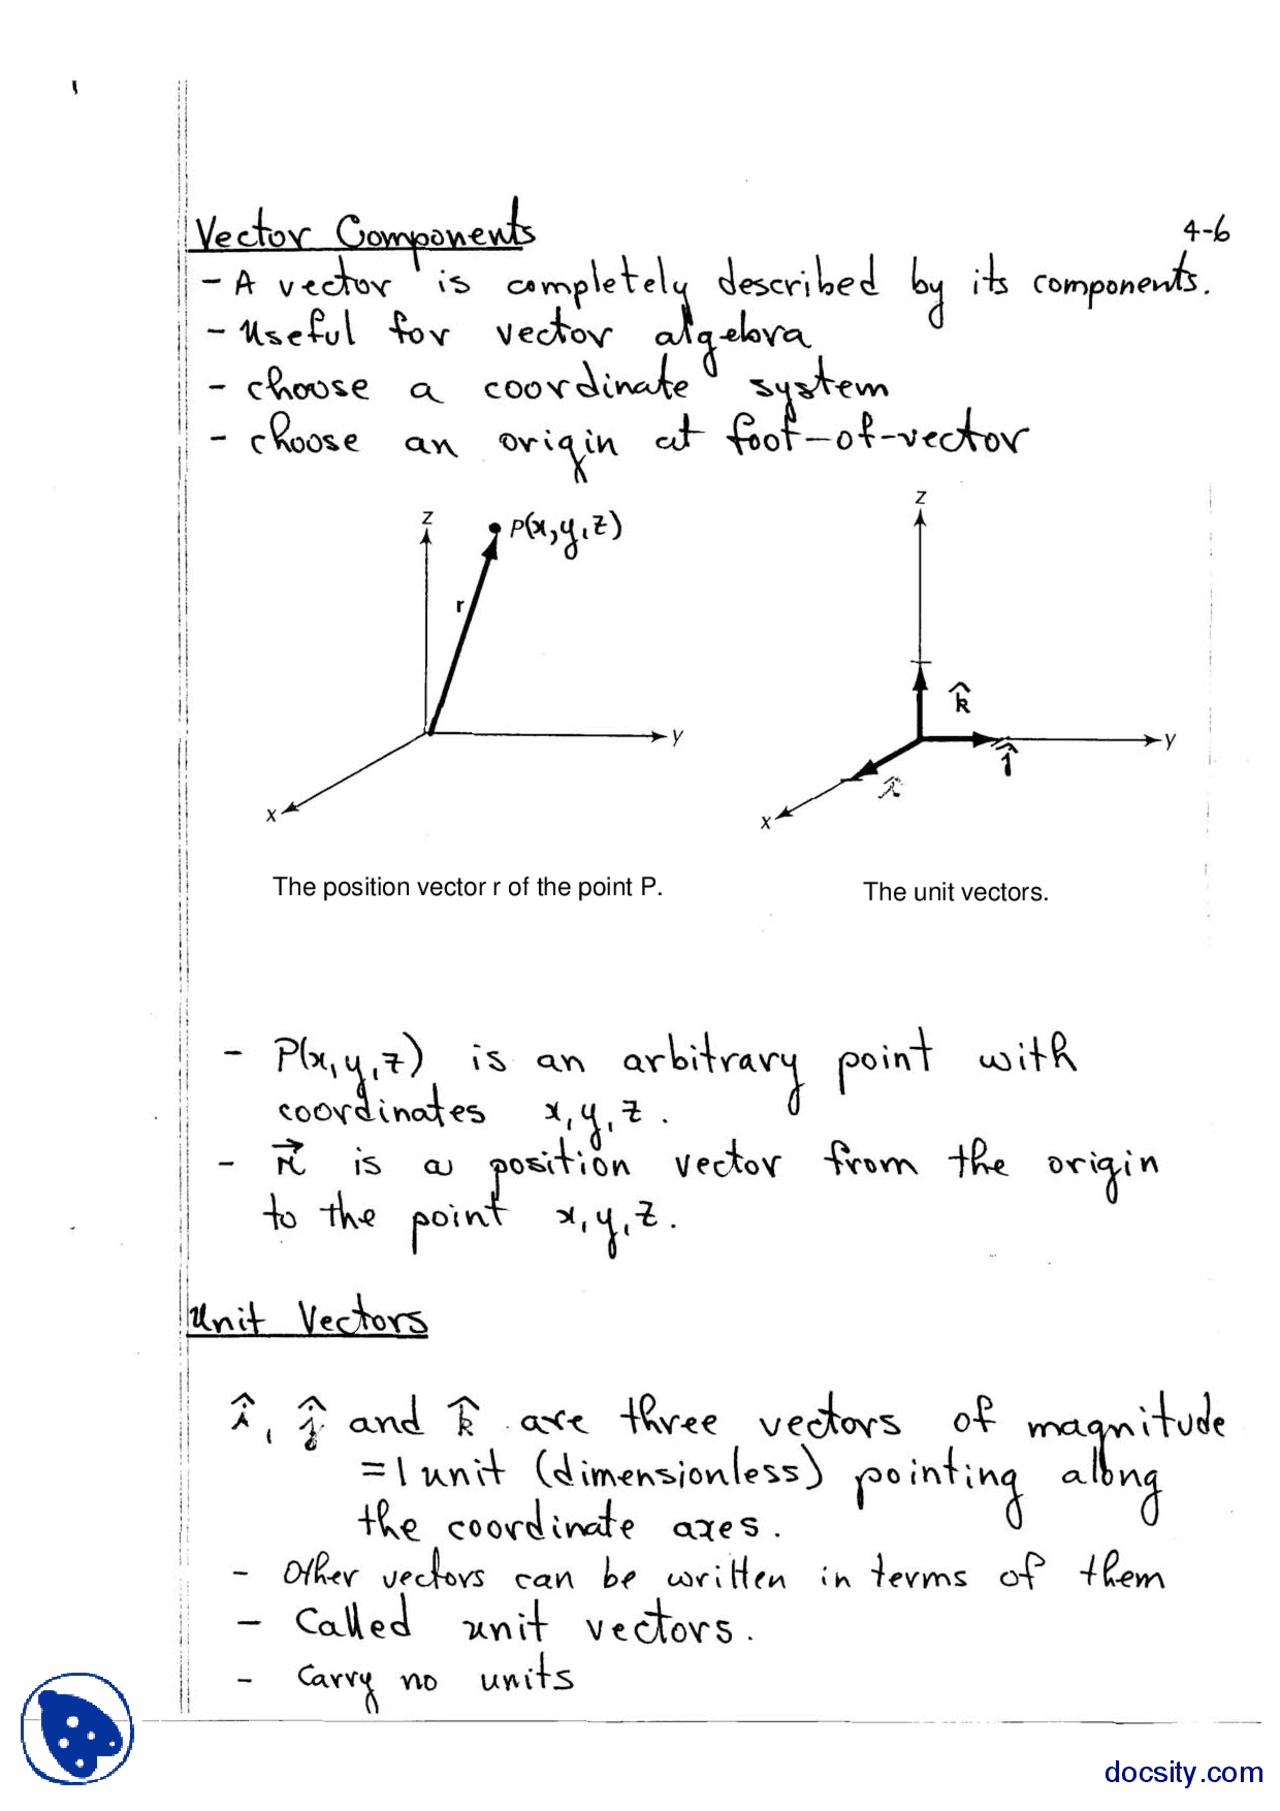 Vector Components
4-6
- A vector is completely described by its components.
- Useful for vector algebra
- choose a coordinate system
- choose an origin at foot-of-vector
z
P(x,y,z)
r
y
x
z
k̂
y
ĵ
î
x
The position vector r of the point P.
The unit vectors.
- P(x,y,z) is an arbitrary point with
coordinates x,y,z.
- r⃗ is a position vector from the origin
to the point x,y,z.
Unit Vectors
î, ĵ and k̂ are three vectors of magnitude
=1 unit (dimensionless) pointing along
the coordinate axes.
- Other vectors can be written in terms of them
- Called unit vectors.
- Carry no units
docsity.com